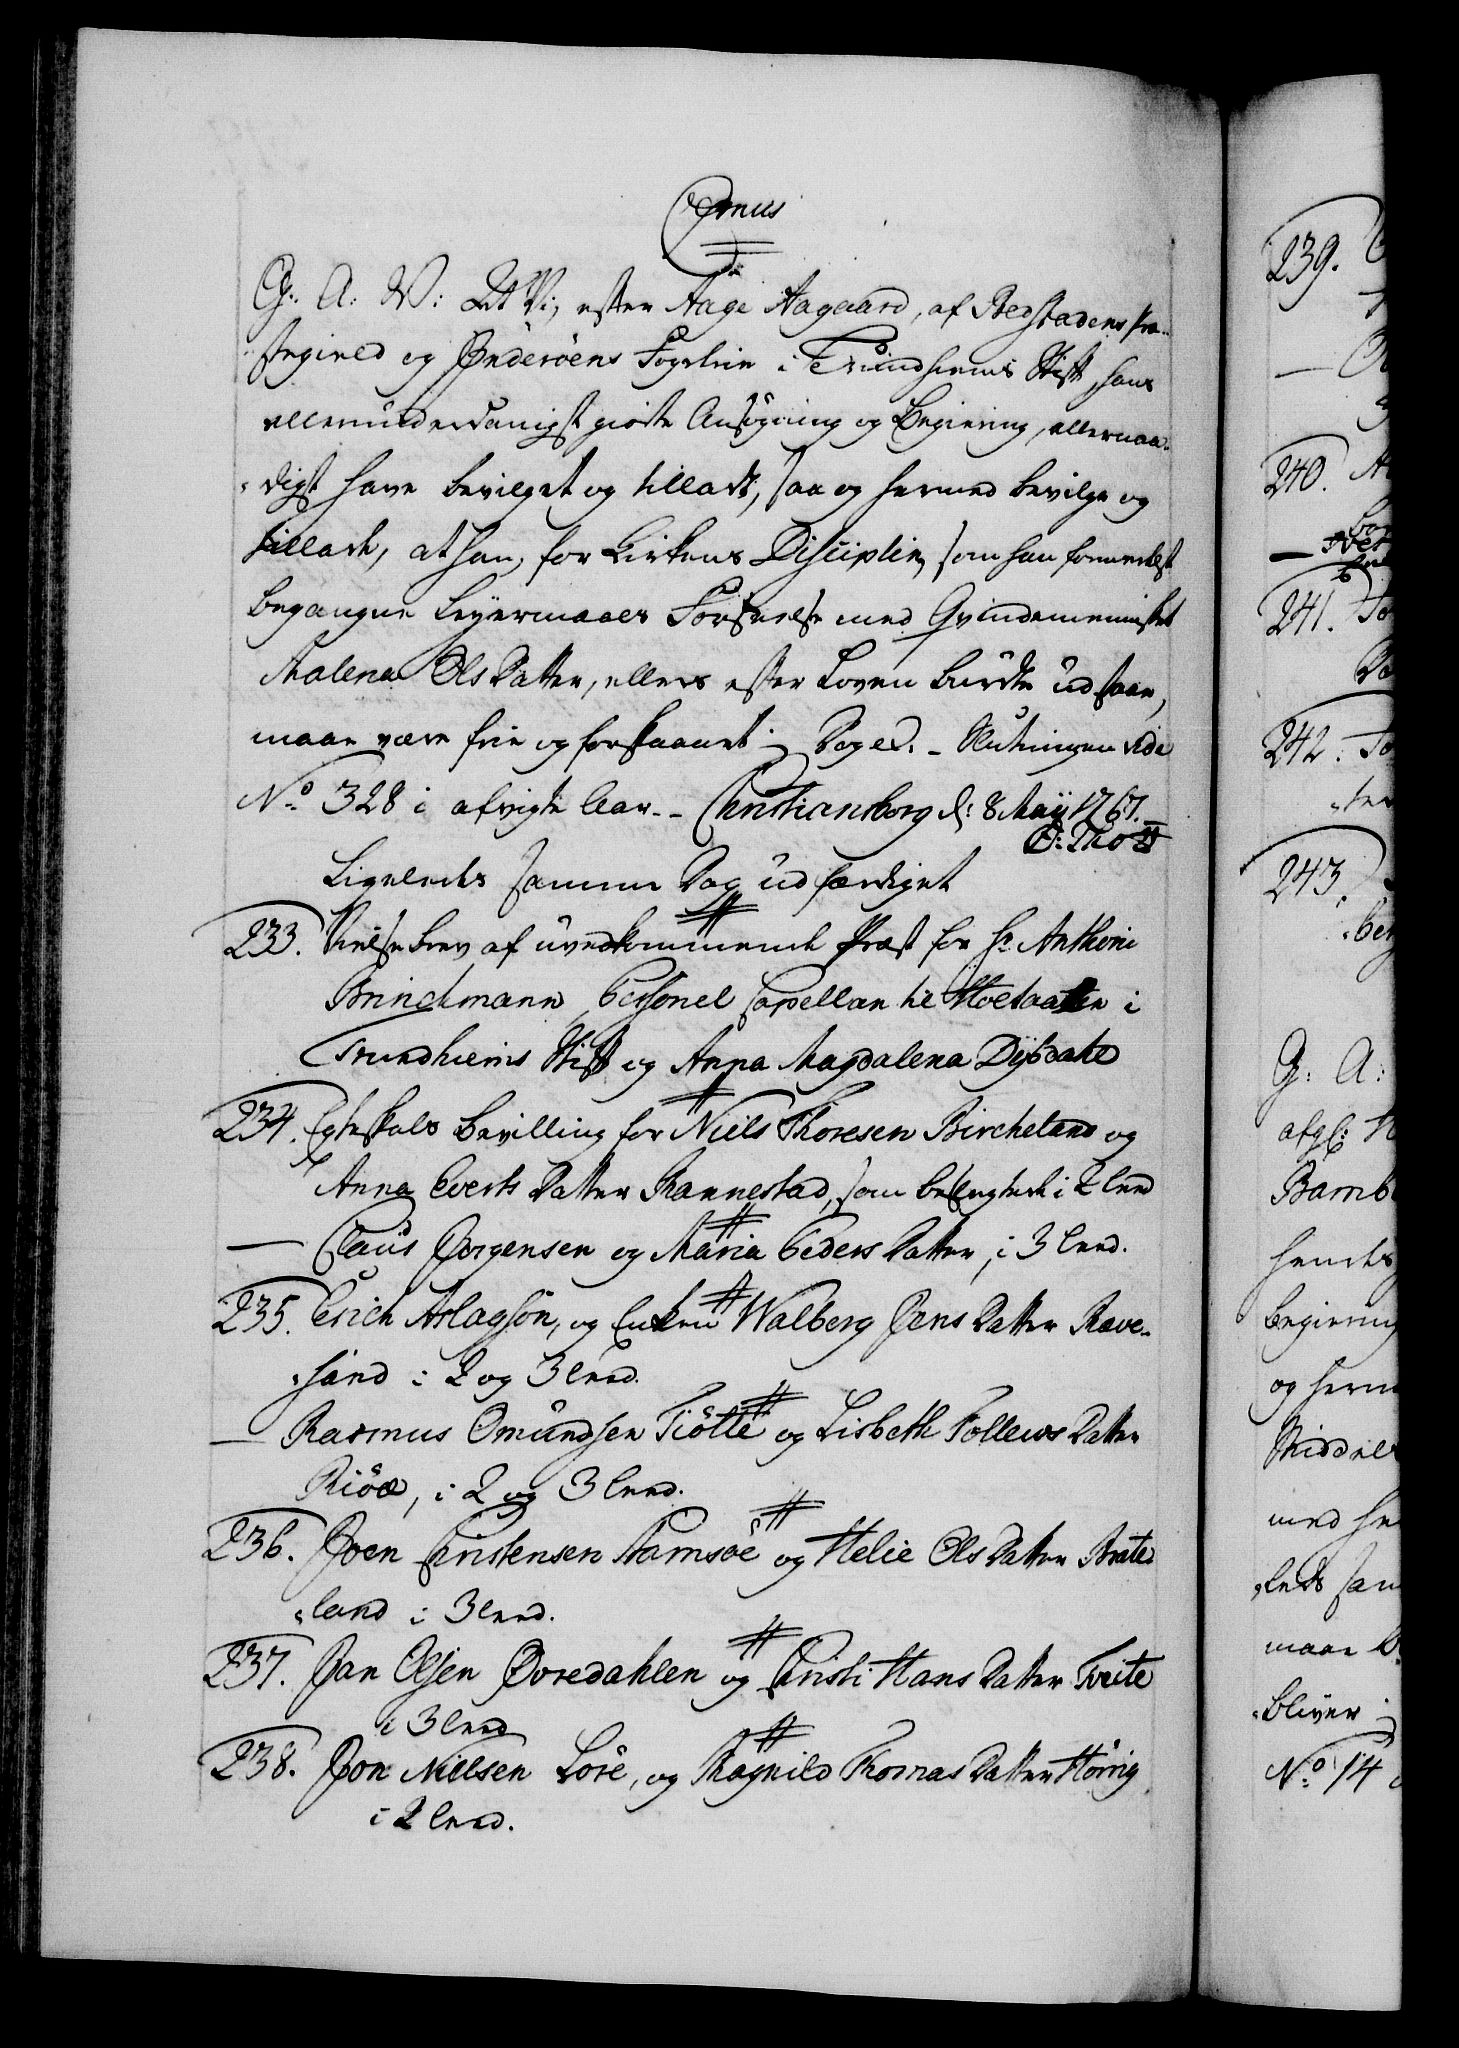 C 7mus
G: A: V: At Vi, efter Aage Aagaard, af Bedstadens Præ-
stegield og Inderöens Fogderie i Trundhiems Stift, hans
allerunderdanigst giorte Ansögning og Begiering, allernaa-
digst have bevilget og tilladt, saa og hermed bevilge og
tillade, at han, for Kirkens Disciplin, som han formedelst
begangne Leyermaals Forseelse med Qvindemennisket
Malena Ols Datter, ellers efter Loven burde udstaae,
maae være frie og forskaanet j Dog ed. - Slutningen vide
No 328 i afvigte Aar. - Christiansborg d: 8 Maij 1767.
O: Thott
Ligeledes samme Dag udfærdiget
233. Vielsebrev af uvedkommende Præst for Hr Anthoni
Brinchmann, Personel Capellan til Stoe i
Trundhiems Stift og Anna Magdalena Dysdahl
234. Egteskabs Bevilling for Niels Thoresen Bircheland og
Anna Everts Datter Rannestad, som beslegtede i 2 Leed
— Claus Jörgensen og Maria Peders Datter, i 3 Leed.
235. Erich Aslagsön, og Enken Walberg Jens Datter Ræve-
sand i 2 og 3 Leed.
— Rasmus Omundsen Tiötte og Lisbeth Tollevs Datter
Riöe, i 2 og 3 Leed.
236. Joen Christensen Stamsöe og Helie Ols Datter Brate-
land i 3 Leed.
237. Jan Olsen Övredahlen og Christi Hans Datter Tveite
i 3 Leed
238. Jon Nielsen Löre, og Ragnild Thomas Datter Hörig
i 2 Leed.
239.
240.
241.
242.
243.
G: A:
Bamb
hendes
begiering
og herm
Middel
med he
maae b
bliver
No 14